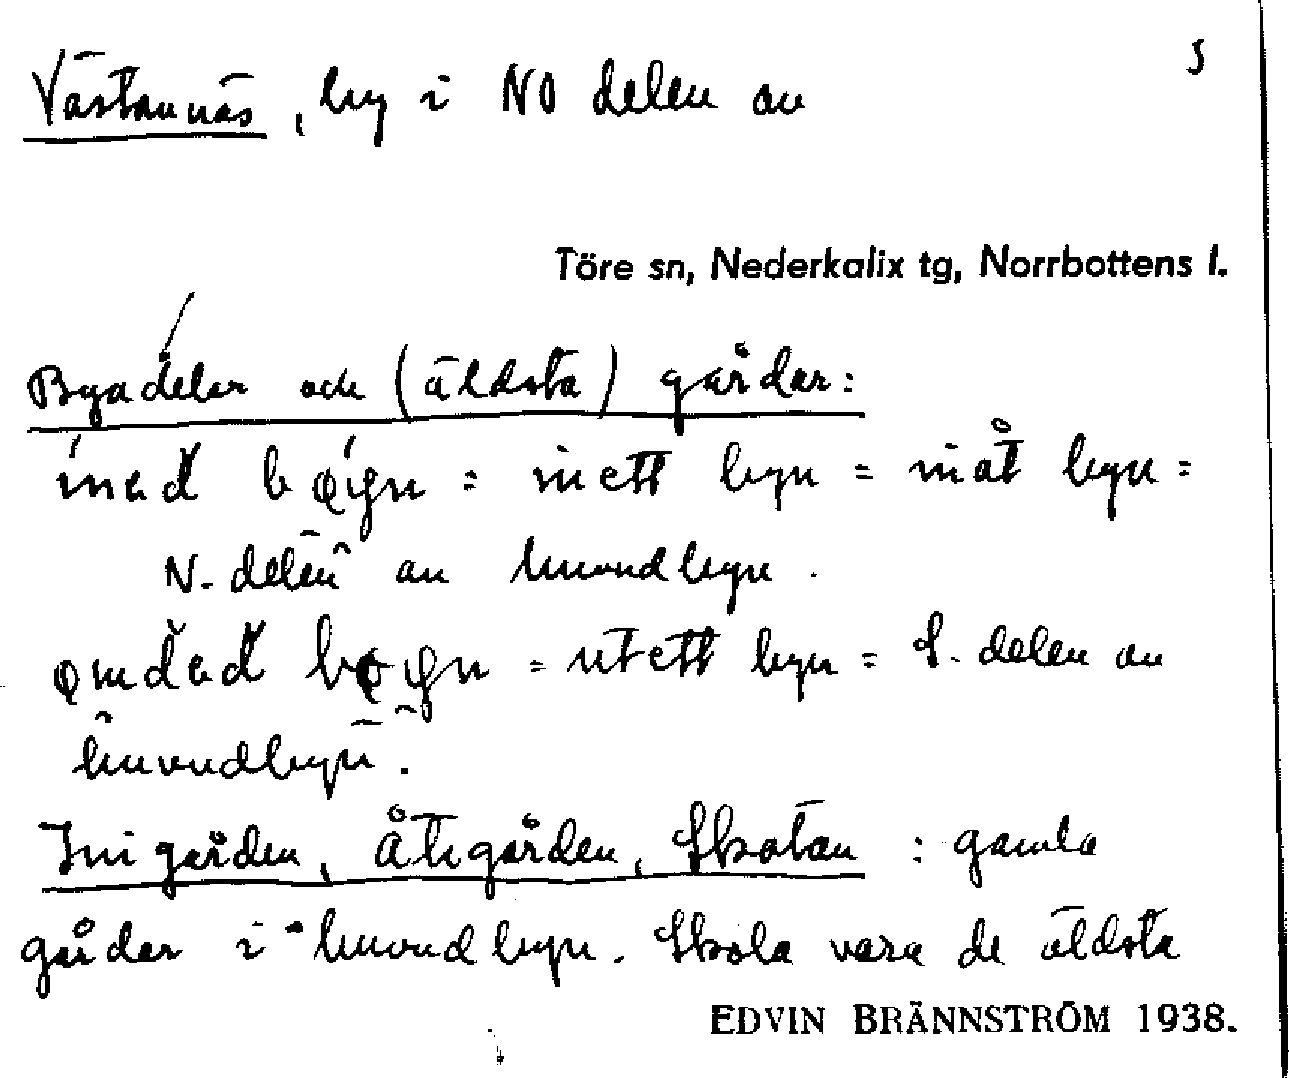 5
Västannäs, by i NO delen av
Töre sn, Nederkalix tg, Norrbottens l.
Byadelar och (äldsta) gårdar:
= niett byn = niåt byn =
N. delen av huvudbyn.
= utett byn = S. delen av
huvudbyn.
Inigården, Åtigården, Skatan : gamla
gårdar i huvudbyn. Skola vara de äldsta
EDVIN BRÄNNSTRÖM 1938.